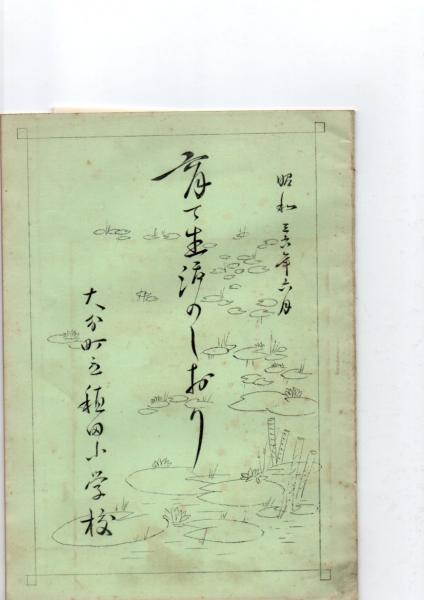 昭和三六年六月
育て生活のしおり
大分町立稙田小学校